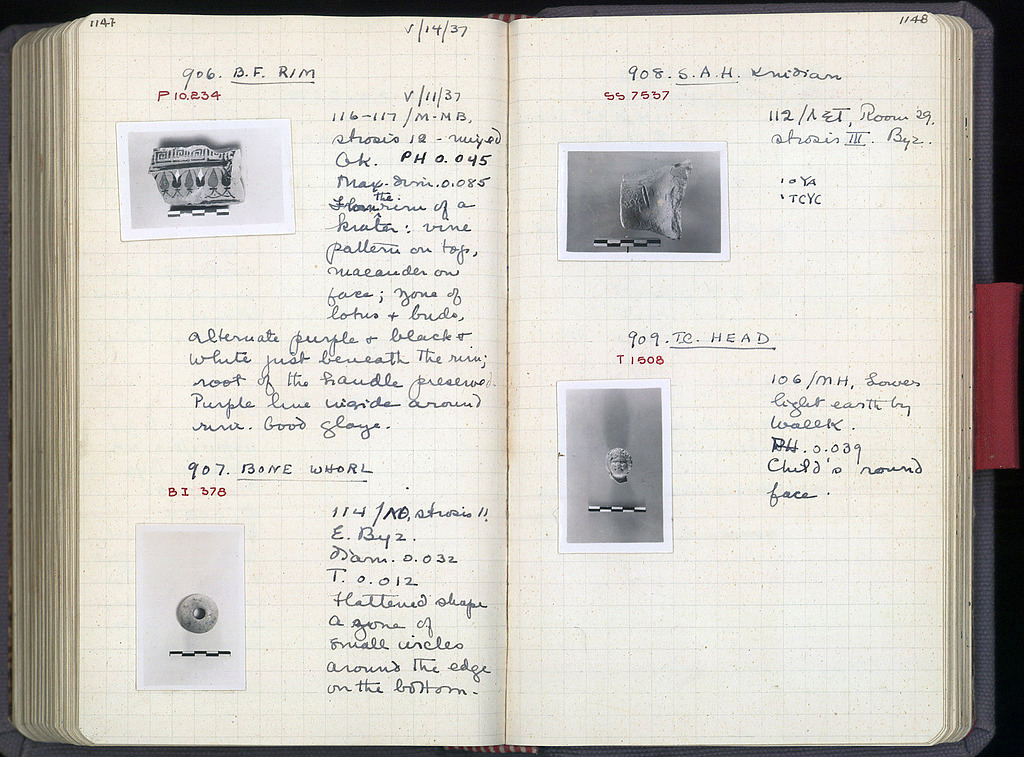 1147
V/14/37
906. B.F. RIM
P 10.234
V/11/37
116-117/M-MB,
strosis 12 - mixed
Gk. PH 0.045
Max. dim. 0.085
the
rim of a
krater: vine
pattern on top,
maeander on
face; zone of
lotus + buds,
alternate purple + black +
white just beneath the rim;
root of the handle preserved.
Purple line inside around
rim. Good glaze.
907. BONE WHORL
BI 378
114/ strosis 11.
E. Byz.
Diam. 0.032
T. 0.012
Flattened shape
a zone of
small circles
around the edge
on the bottom.
1148
908. S.A.H. Knidian
SS 7537
112/ Room 29.
strosis III. Byz.
909. TC. HEAD
T 1508
106/MH, Lower
light earth by
wall K.
PH. 0.039
Child's round
face.